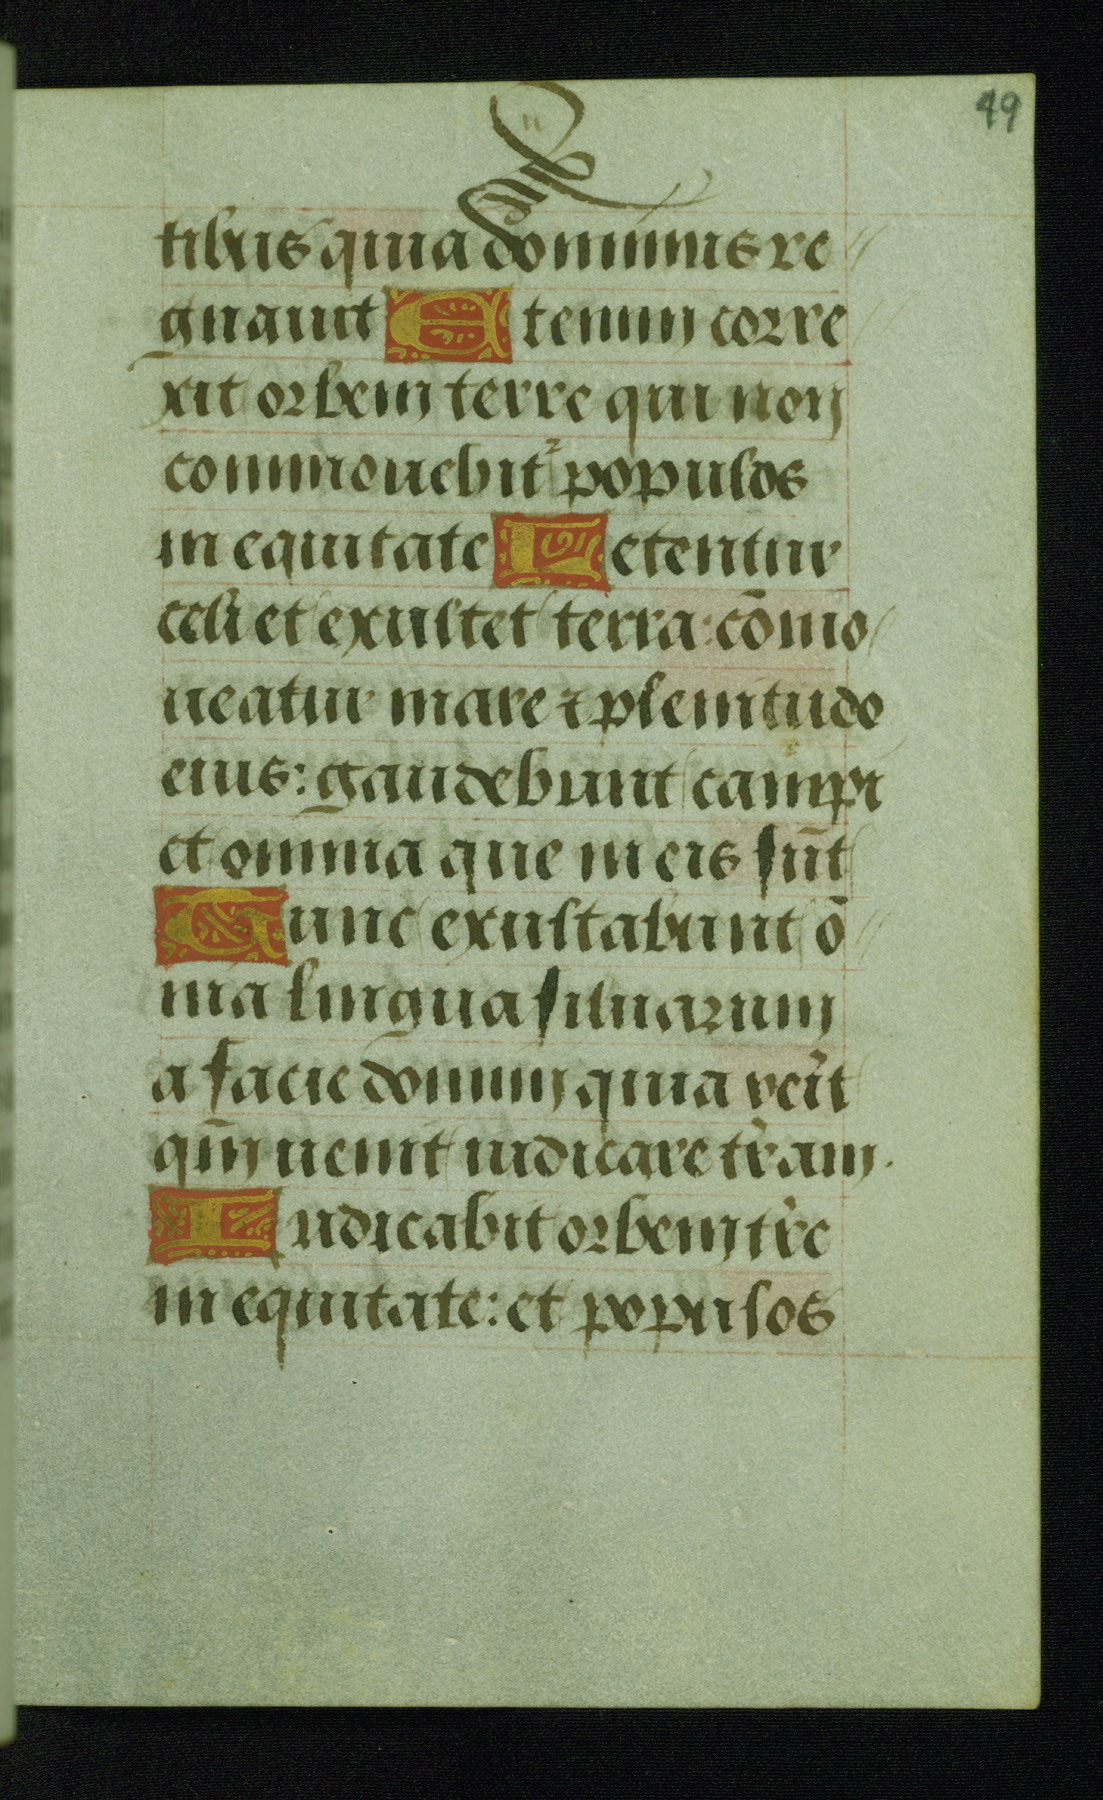 49
tibus quia dominus re
gnauit Etenim corre
xit orbem terre qui non
commouebit᷑ populos
in equitate Letentur
celi et exultet terra: cōmo
ueatur mare ⁊ plenitudo
eius: gaudebunt campi
et omnia que in eis sūt
Tunc exultabunt ō
nia lingua siluarum
a facie domini quia veīt
qm̄ uenit iudicare tr̄am.
Iudicabit orbem tr̄e
in equitate: et populos